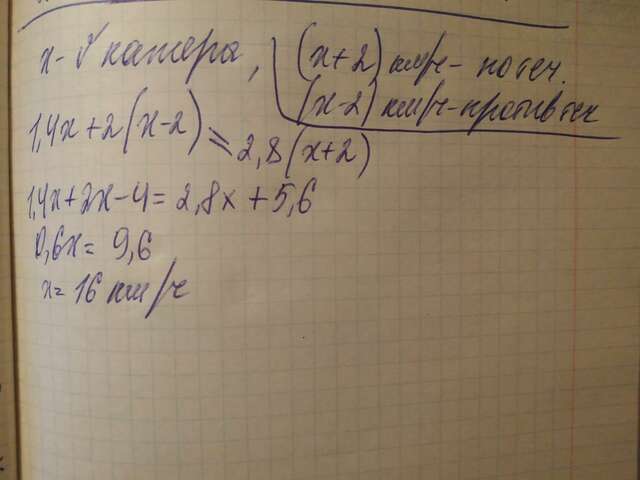 x - V катера, (x+2) км/ч - по теч.
(x-2) км/ч - против теч
1,4x+2(x-2) = 2,8(x+2)
1,4x+2x-4 = 2,8x+5,6
0,6x = 9,6
x = 16 км/ч